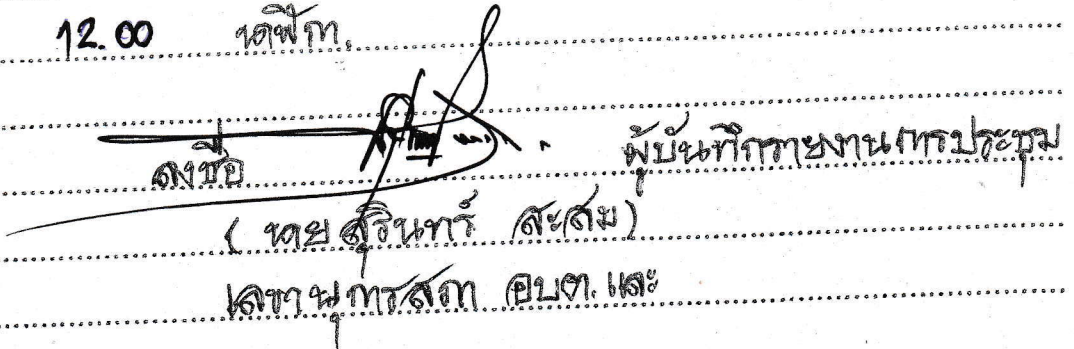 12.00 นาฬิกา.
ลงชื่อ ผู้บันทึกรายงานการประชุม
( นายสุรินทร์ สะสม )
เลขานุการสภา อบต. และ